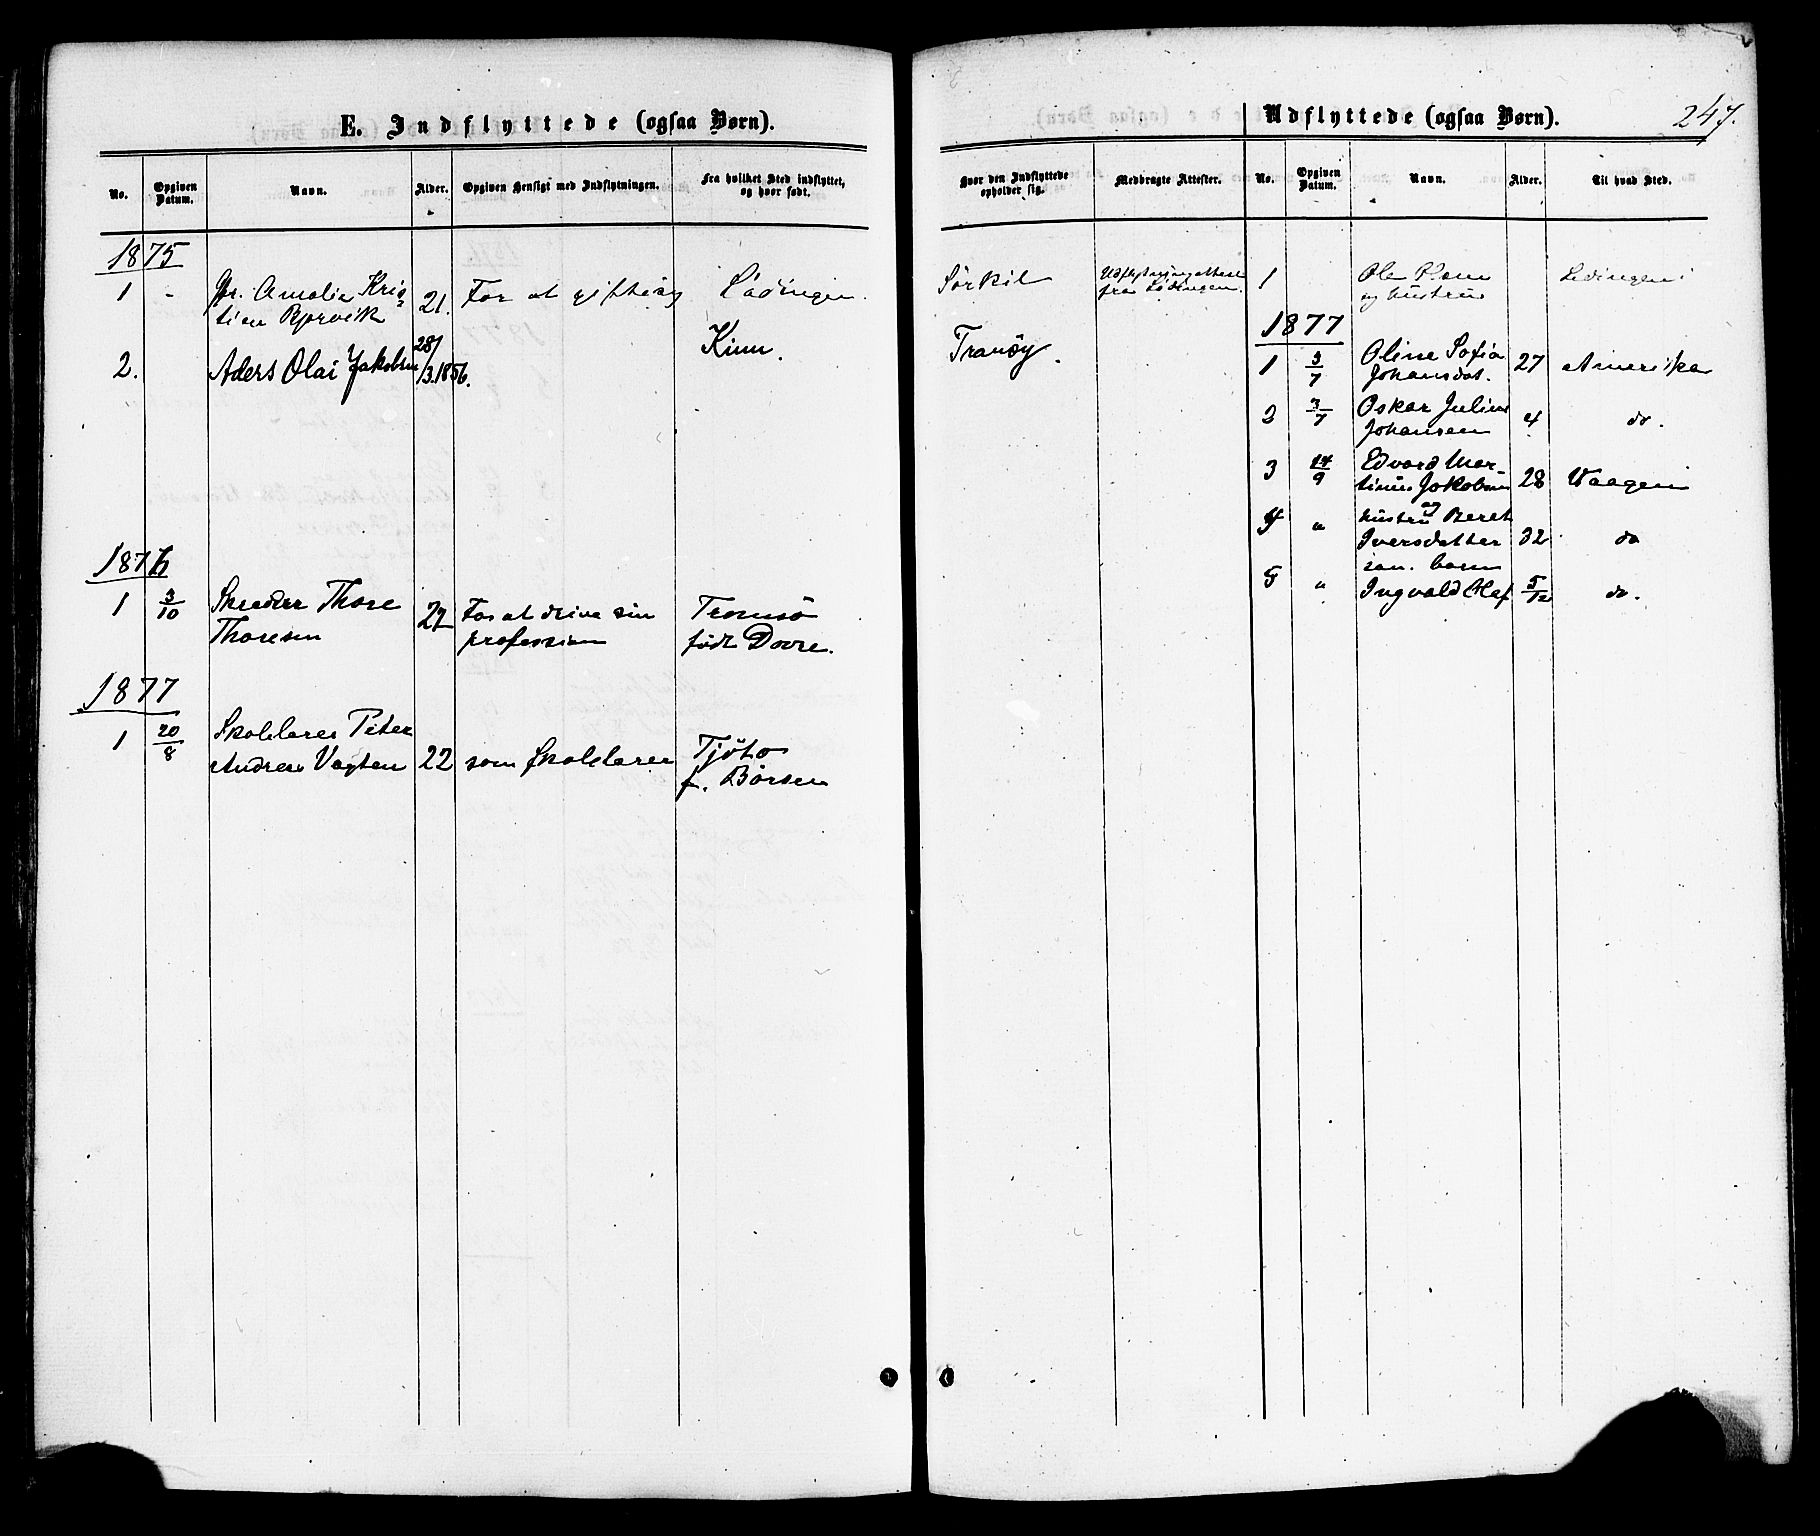 E. Indflyttede (ogsaa Børn).
No.
Opgiven Datum.
Navn.
Alder.
Opgiven Hensigt med Indflytningen.
Fra hvilket Sted indflyttet,
og hvor født.
1875
1 - Amalia Kris
tien Bjorvik 21. For at giftes Lødingen.
2. Aders Olai Jakobsen 28/3.1856. Kinn.
1876
1 3/10 Skreder Thore
Thoresen For at drive sin
profession
Tromsö
født Dovre.
1877
1 20/8 Skolelærer Peter
Andreas Vagten 22 som skolelærer
Tjötø
f. Börsen
Udflyttede (ogsaa Børn).
247.
Hvor den Indflyttede
opholder sig.
Medbragte Attester.
No.
Opgiven
Datum.
Navn.
Alder.
Til hvad Sted.
Sörkil
Udflytningsattest
fra Lödingen.
Tranöy.
1 Ole Olsen
og hustru
Lødingen
1877
1 3/7 Oline Sofia
Johansdat. 27 Amerika
2 3/7 Oskar Julius
Johansen 4 do.
3 14/9 Edvard Mar-
tinus Jakobsen 28 Vaagen
4 " og hustru Beret
Iversdatter 32 do
5 " barn
Ingvald Olaf 5/12 do.